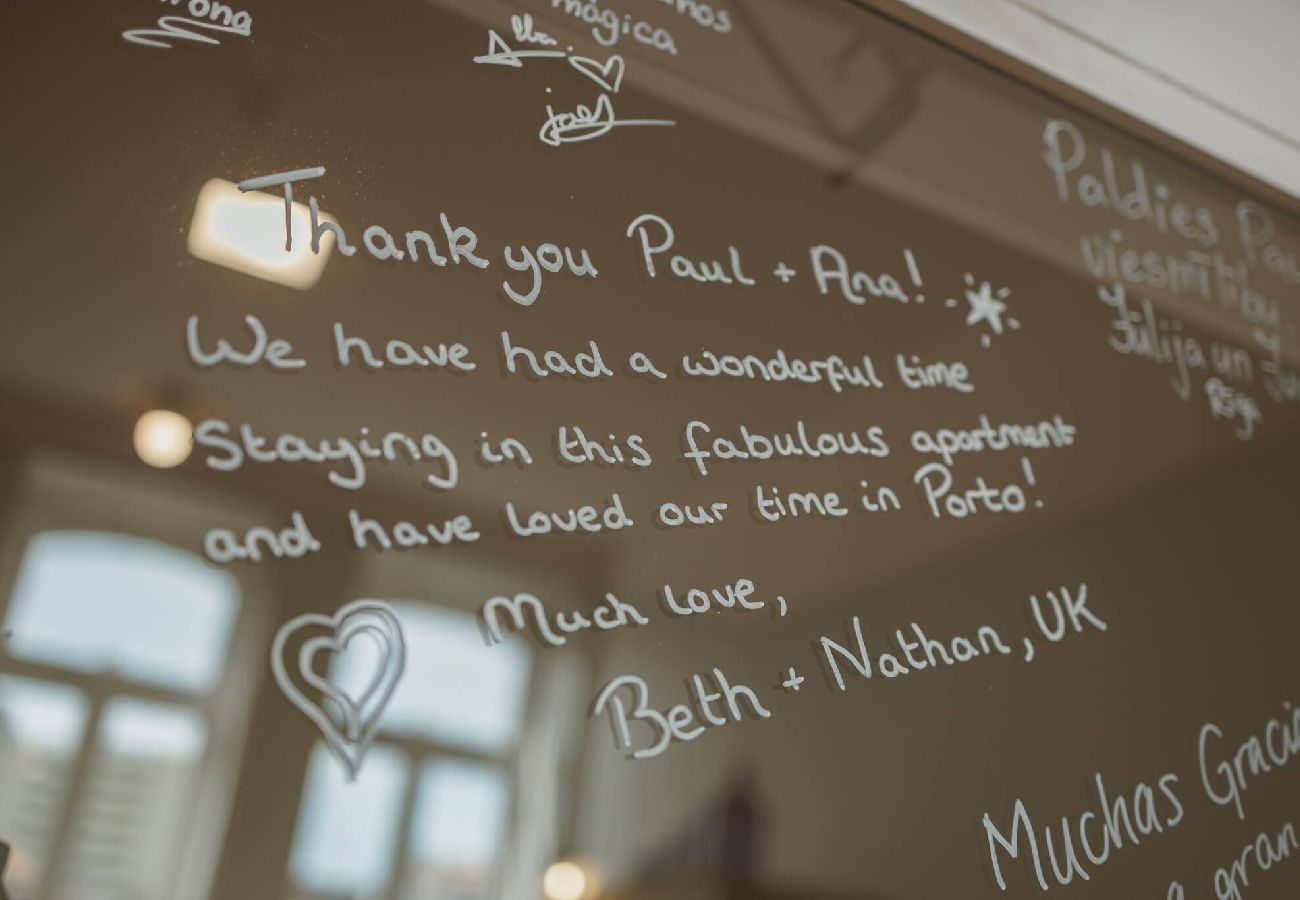 mágica
Thank you Paul + Ana!
We have had a wonderful time
Staying in this fabulous apartment
and have loved our time in Porto!
Much love,
Beth + Nathan, UK
Paldies
Jūlija un
Muchas
gran